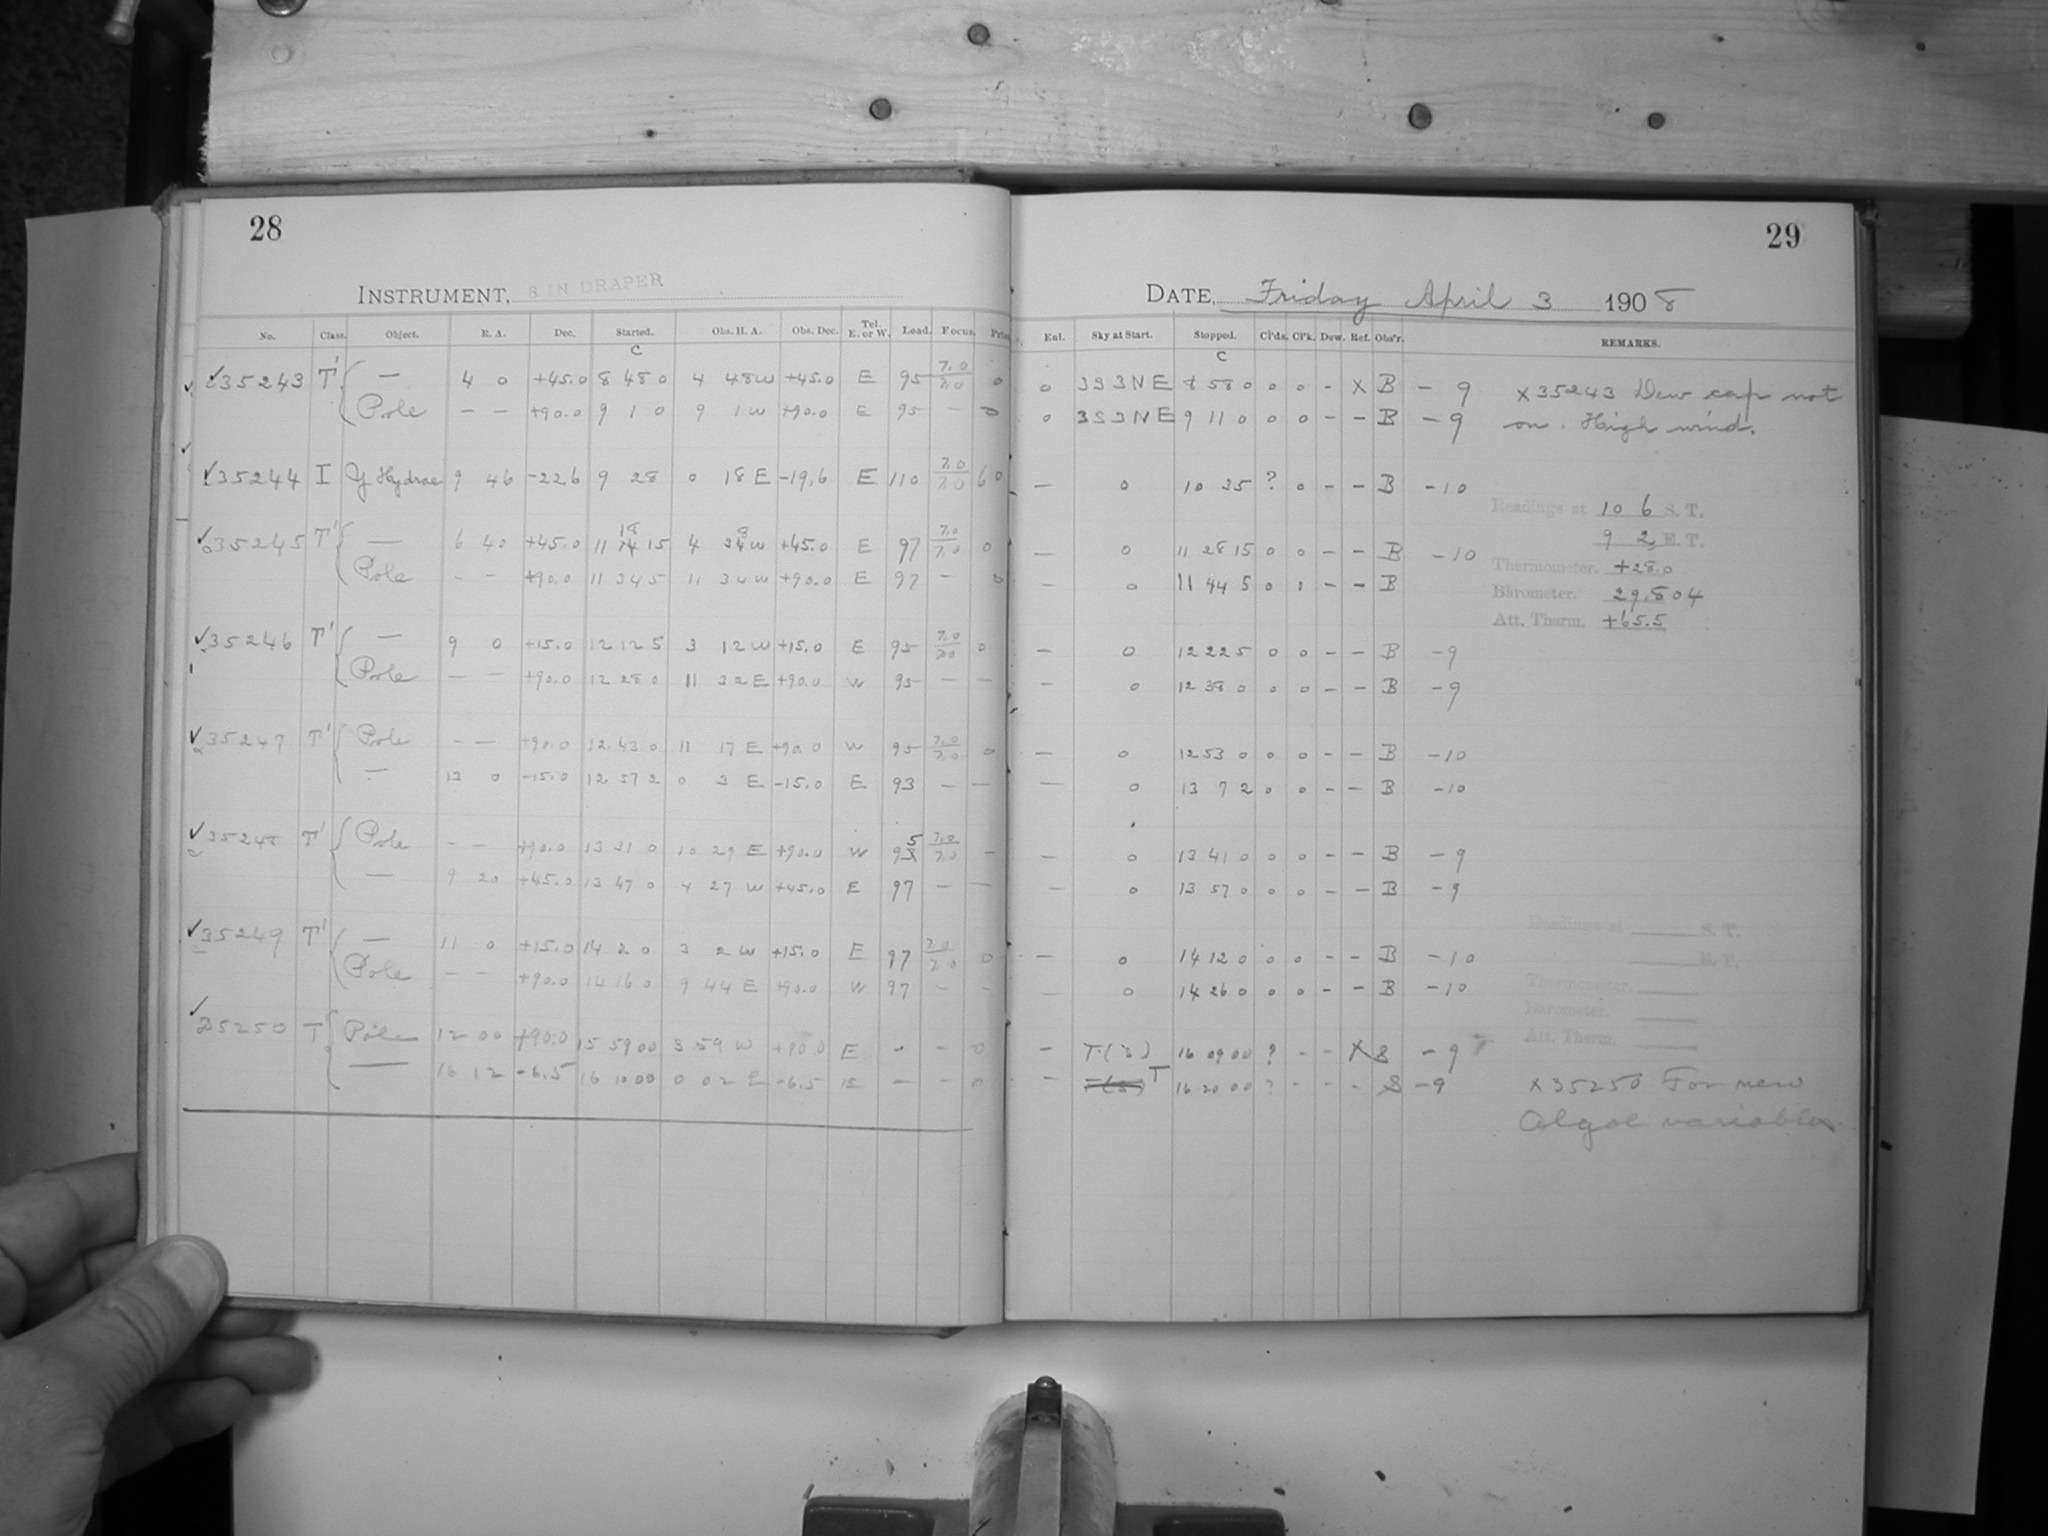 28
INSTRUMENT, 8 IN DRAPER
No. Class. Object. R. A. Dec. Started. Obs. H. A. Obs. Dec. Tel. E. or W. Load. Focus.
C
35243 T' — 4 0 +45.0 8 48 0 4 48 W +45.0 E 95 7.0 7.0 0
Pole — — +90.0 9 1 0 9 1 W +90.0 E 95 — 0
35244 I Y Hydrae 9 46 -22.6 9 28 0 18 E -19.6 E 110 7.0 7.0 60
35245 T' — 6 40 +45.0 11 18 15 4 38 W +45.0 E 97 7.0 7.0 0
Pole — — +90.0 11 34 5 11 34 W +90.0 E 97 — 0
35246 T' — 9 0 +15.0 12 12 5 3 12 W +15.0 E 95 7.0 7.0 0
Pole — — +90.0 12 28 0 11 32 E +90.0 W 95 — —
35247 T' Pole — — +90.0 12 43 0 11 17 E +90.0 W 95 7.0 7.0 0
— 13 0 -15.0 12 57 2 0 3 E -15.0 E 93 — —
35248 T' Pole — — +90.0 13 31 0 10 29 E +90.0 W 95 7.0 7.0 —
— 9 20 +45.0 13 47 0 4 27 W +45.0 E 97 — —
35249 T' — 11 0 +15.0 14 2 0 3 2 W +15.0 E 97 7.0 7.0 0
Pole — — +90.0 14 16 0 9 44 E +90.0 W 97 — —
35250 T Pole 12 00 +90.0 15 59 00 3 59 W +90.0 E - - 0
— 16 12 -6.5 16 10 00 0 02 E -6.5 E — — 0
29
DATE, Friday April 3 1908
Enl. Sky at Start. Stopped. Cl'ds. Cl'k. Dew. Ref. Obs'r. REMARKS.
C
0 3S3NE 8 58 0 0 0 - X B - 9 x35243 Dew cap not
0 3S3NE 9 11 0 0 0 - - B - 9 on. High wind.
— 0 10 35 ? 0 - - B - 10
Readings at 10 6 S. T.
9 2 E. T.
— 0 11 28 15 0 0 - - B - 10
Thermometer. +28.0
— 0 11 44 5 0 0 - - B
Barometer. 29.804
Att. Therm. +65.5
— 0 12 22 5 0 0 - - B - 9
— 0 12 38 0 0 0 - - B - 9
— 0 12 53 0 0 0 - - B - 10
— 0 13 7 2 0 0 - - B - 10
— 0 13 41 0 0 0 - - B - 9
— 0 13 57 0 0 0 - - B - 9
Readings at S. T.
E. T.
— 0 14 12 0 0 0 - - B - 10
Thermometer.
— 0 14 26 0 0 0 - - B - 10
Barometer.
Att. Therm.
— T(3) 16 09 00 ? - - X S - 9
— T 16 20 00 ? - - - S - 9 x35250 For new
Algol variables